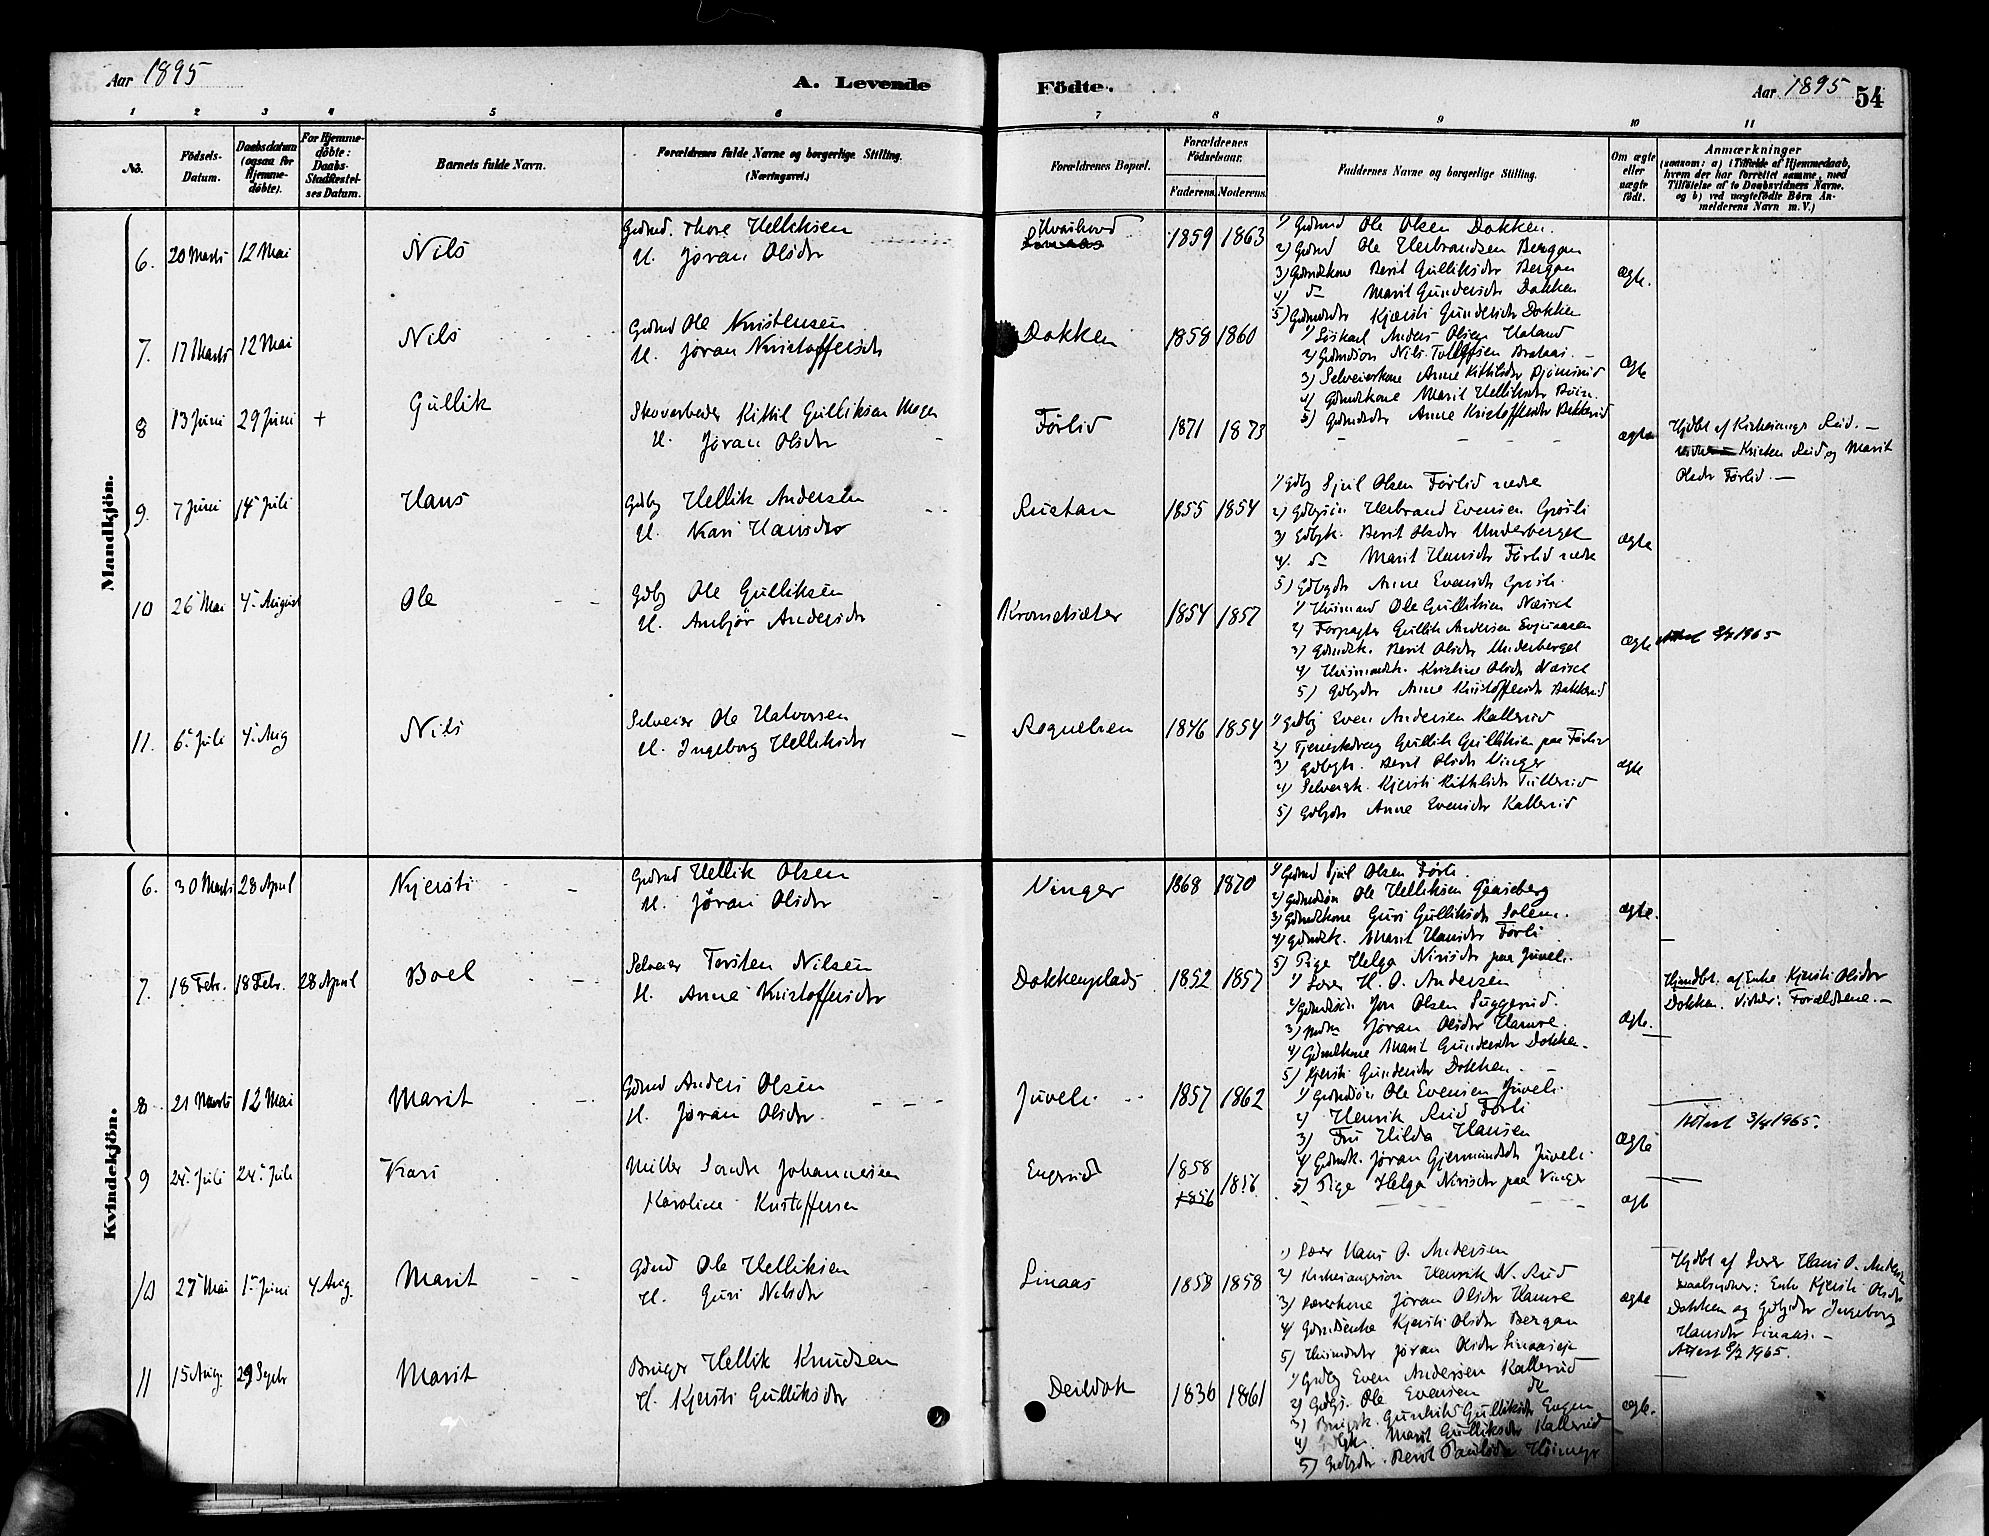 Aar 1895
A. Levende
Födte.
Aar 1895 54
1 2 3 4 5 6 7 8 9 10 11
No.
Födsels-
Datum.
Daabsdatum
(ogsaa for
Hjemme-
døbte).
For Hjemme-
døbte:
Daabs-
Stadfæstel-
ses Datum.
Barnets fulde Navn.
Forældrenes fulde Navne og borgerlige Stilling.
(Næringsvei.)
Forældrenes Bopæl.
Forældrenes
Födselsaar.
Faderens. Moderens.
Faddernes Navne og borgerlige Stilling.
Om ægte
eller
uægte
født.
Anmærkninger
(saasom: a) i Tilfælde af Hjemmedaab,
hvem der har forrettet samme, med
Tilföielse af to Daabsvidners Navne,
og b) ved uægtefödte Börn An-
melderens Navn m. V.)
Mandkjön.
6. 20 Marts 12 Mai Nils
Gdmd. Thore Helliksen
H. Jøran Olsdr
1859 1863
1) Gdmd Ole Olsen Dokken.
2) Gdmd Ole Herbrandsen Bergan
3) Gdmdkone Berit Gulliksdr Bergan
4) do Marit Gundersdr Dokken
5) Gdmdsdtr Kjersti Gundersdr Dokken
ægte.
7. 17 Marts 12 Mai Nils
Gdmd Ole Kristensen
H. Jøran Kristoffersdr
Dokken 1858 1860
1) Anders Olsen Haland
2) Gdmdsøn Nils
3) Selveierkone Anne Kittilsdr
4) Gdmdkone Marit Helliksdr
5) Gdmdsdtr Anne Kristoffersdr Bakkerud
ægte
8 13 Juni 29 Juni + Gullik
Skovarbeider Kittil Gulliksen Mogen
H. Jøran Olsdr
Førlid 1871 1873
ægte
Hjdbt af Kirkesanger Ruud. —
Kirsten Ruud og Marit
Olsdr Førlid. —
9. 7 Juni 14 Juli Hans
Gdbg Hellik Andersen
H. Kari Hansdr
Rustan 1855 1854
1) Gdbg Sjul Olsen Førlid nedre
2) Gdbgsøn Herbrand Evensen Grøsli
3) Gdbgk. Berit Olsdr Underberget
4. do Marit Hansdr Førlid nedre
5) Gdbgdtr Anne Evensdr Grøsli
ægte
10 26 Mai 4 August Ole
Gdbg Ole Gulliksen
H. Ambjør Andersdr
Kromsæter 1854 1857
1) Husmand Ole Gulliksen Næset
2) Forpagter Gullik Andersen
3) Gdmdk. Berit Olsdr Underberget
4) Husmandsk. Kristine Olsdr Næset
5) Gdbgdtr Anne Kristoffersdr Bakkerud
ægte 1965
11. 6 Juli 4 Aug Nils
Selveier Ole Halvorsen
H. Ingeborg Helliksdr
Roguelien 1846 1854
1) Gdbg Even Andersen Kallerud
2) Tjenestedreng Gullik Gulliksen paa Førlid
3) Gdbgk. Berit Olsdr Vinger
4) Selveierk. Kjersti Kittilsdr Tullerud
5) Gdbgdtr Anne Evensdr Kallerud
ægte
Kvindekjön.
6. 30 Marts 28 April Kjersti
Gdmd Hellik Olsen
H. Jøran Olsdr
Vinger 1868 1870
1) Gdmd Sjul Olsen Førli.
2) Gdmdsøn Ole Helliksen Gaaseberg
3) Gdmdkone Guri Gulliksdr Solem.
4) Gdmdk. Marit Hansdr Førli
5) Pige Helga Nirisdr paa Juveli.
ægte.
7. 18 Febr. 18 Febr. 28 April Boel
Selveier Torsten Nilsen
H. Anne Kristoffersdr
Dokkenplads 1852 1857
1) Lærer H. O. Andersen
2) Gdmdsøn Jon Olsen Suggerud.
3) Jøran Olsdr Hamre.
4) Gdmdkone Marit Gundersdr Dokken.
5) Kjersti Gundersdr Dokken.
ægte.
Hjmdbt. af Enke Kjersti Olsdr
Dokken. Vidner: Forældrene. —
8 21 Marts 12 Mai Marit
Gdmd Anders Olsen
H. Jøran Olsdr.
Juveli 1857 1862
1) Gdmdsøn Ole Evensen Juveli
2) Henrik Ruud Førli
3) Fru Hilda Hansen
4) Gdmdk. Jøran Gjermundsdr Juveli
5) Pige Helga Nirisdr paa Vinger
ægte
Attest 3/4 1965.
9 24 Juli 24 Juli Kari
Møller Johannessen
Karoline Kristoffersen
Engerud 1858
1856 1856
ægte
10 27 Mai 1 Juni 4 Aug. Marit
Gdmd Ole Helliksen
H. Guri Nilsdr
Linaas 1858 1858
1) Lærer Hans O. Andersen
2) Kirkesangersøn Henrik N. Ruud
3) Lærerkone Jøran Olsdr Hamre
4) Gdmdsenke Kjersti Olsdr Bergan
5) Husmdsdtr Jøran Olsdr Linaaseie
ægte
Hjdbt af Lærer Hans O. Andersen
Daabsvidner: Enke Kjersti Olsdr
Dokken og Gdbgdtr Ingeborg
Hansdr Linaas. —
Attest 1965.
11 15 Aug. 29 Septr Marit
Bruger Hellik Knudsen
H. Kjersti Gulliksdr
Deildok 1836 1861
1) Gdbg Even Andersen Kallerud
2) Gdbgs. Ole Evensen do
3) Brugerk. Gunhild Gulliksdr Engen
4) Gdbgk. Marit Gulliksdr Kallerud
5) Gdbgdtr. Berit Paulsdr Høimyr
ægte.